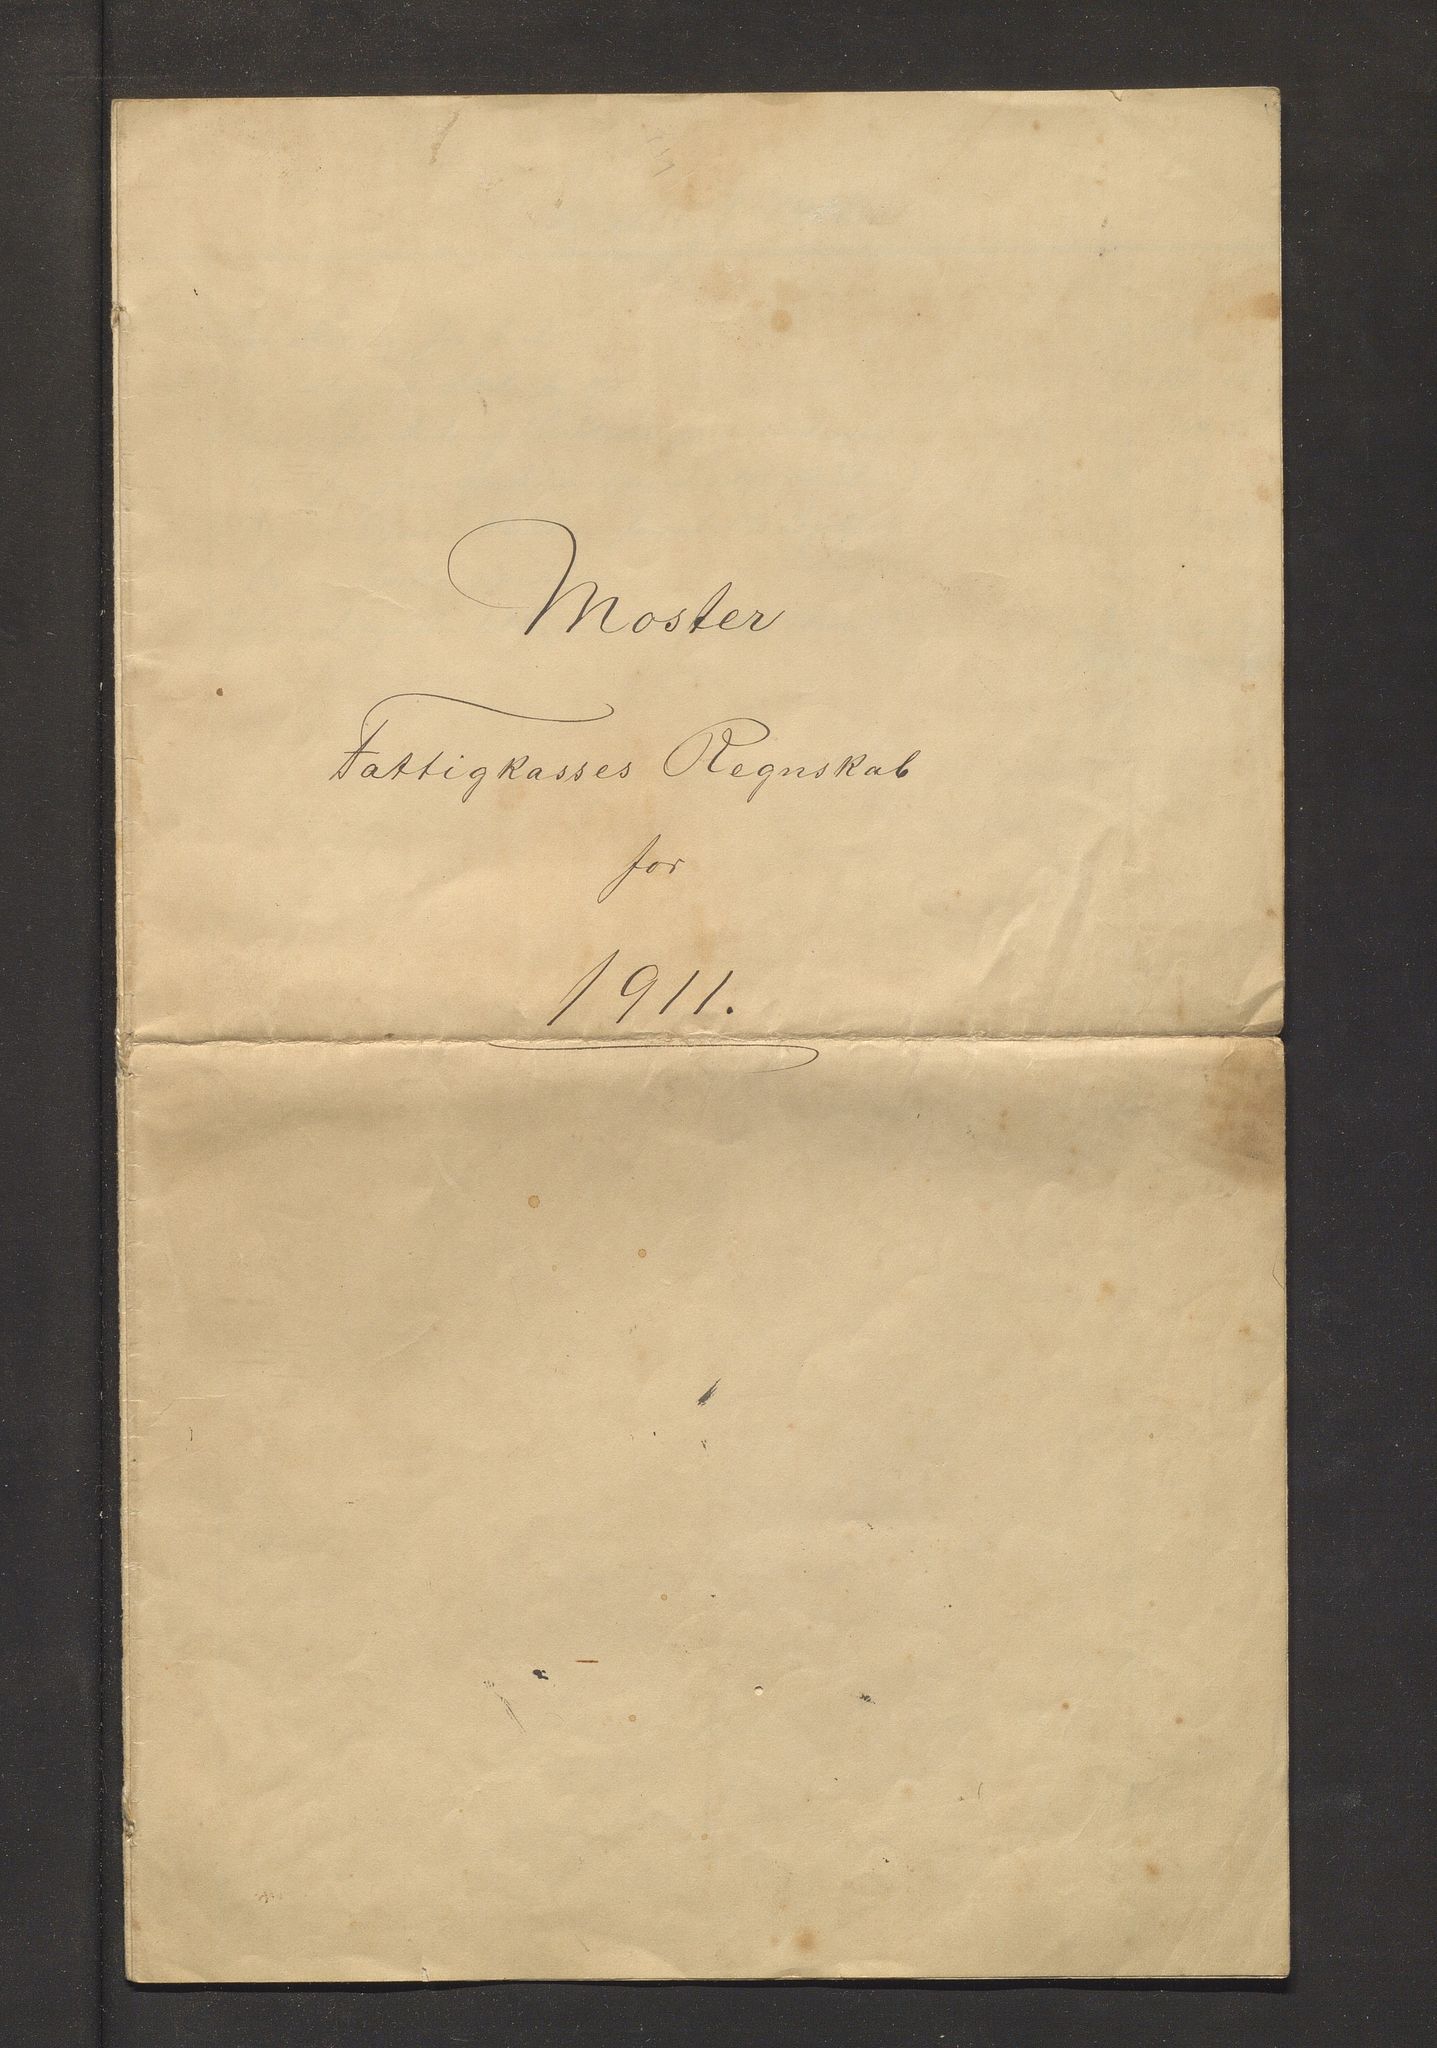 Moster
Fattigkasses Regnskab
for
1911.